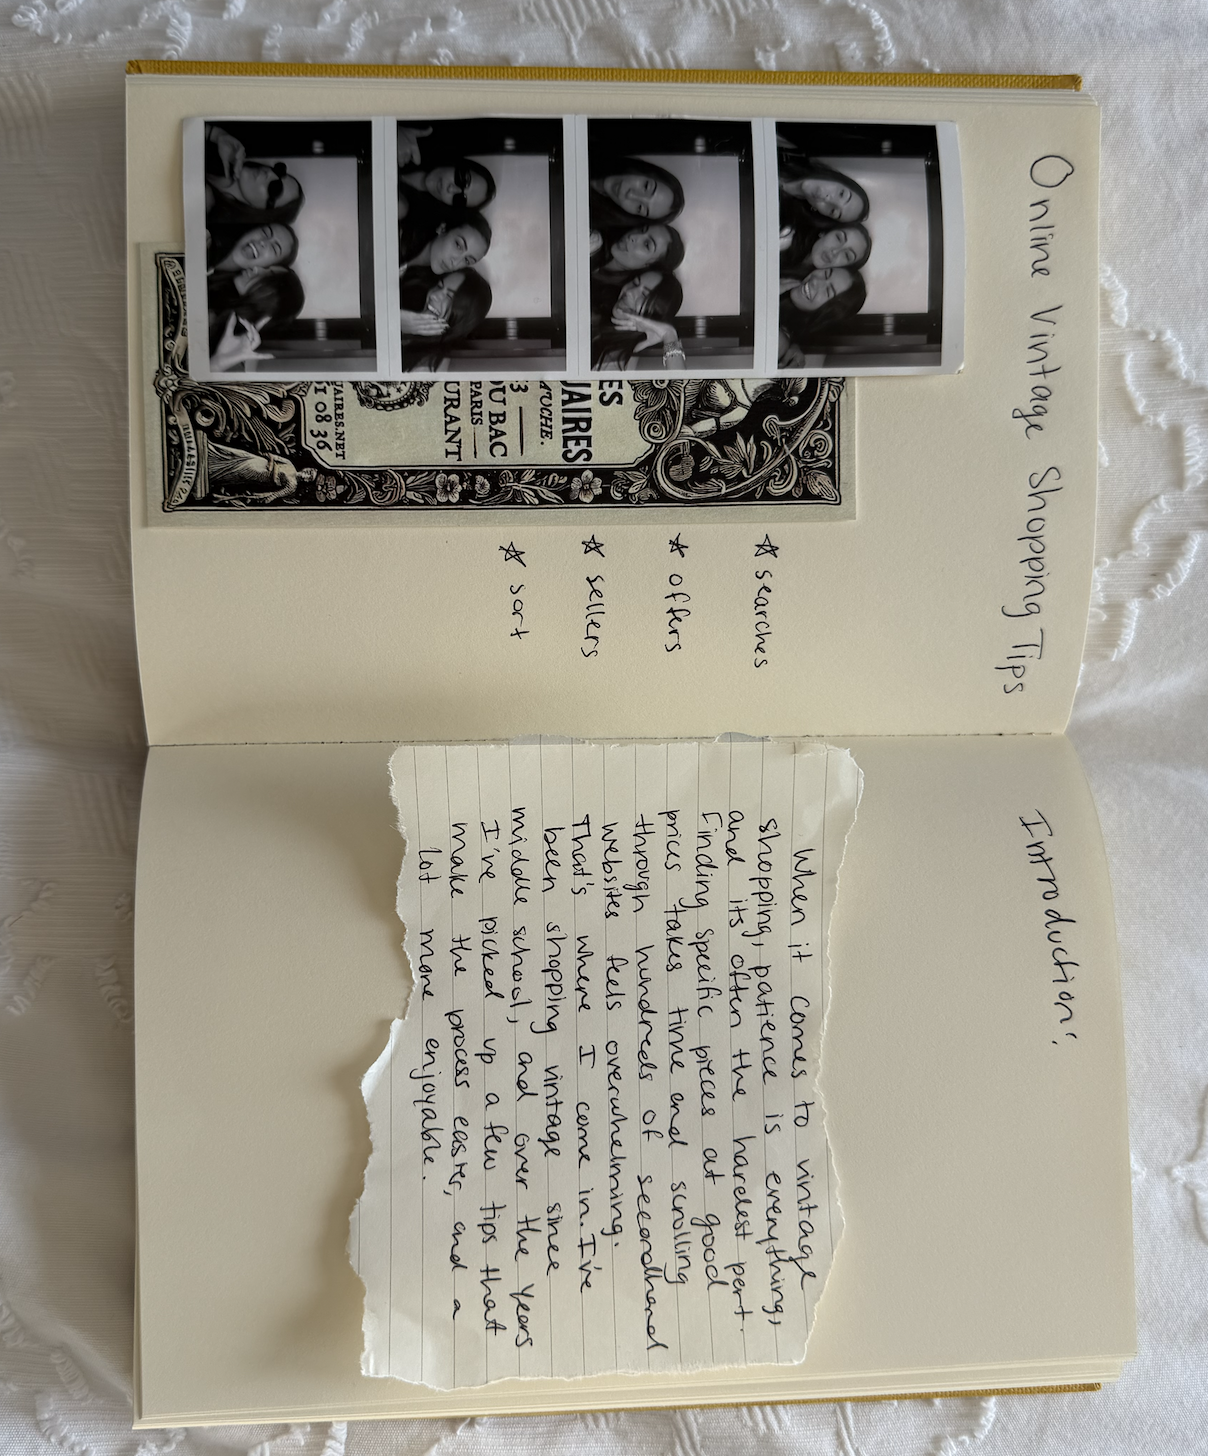 Online Vintage Shopping Tips
ES
UAIRES
AUCHE.
3
OU BAC
PARIS
URANT
AIRES.NET
01 08 36
☆ searches
☆ offers
☆ sellers
☆ sort
Introduction:
When it comes to vintage
shopping, patience is everything,
and its often the hardest part.
Finding specific pieces at good
prices takes time and scrolling
through hundreds of secondhand
websites feels overwhelming.
That's where I come in. I've
been shopping vintage since
middle school, and over the years
I've picked up a few tips that
make the process easier, and a
lot more enjoyable.